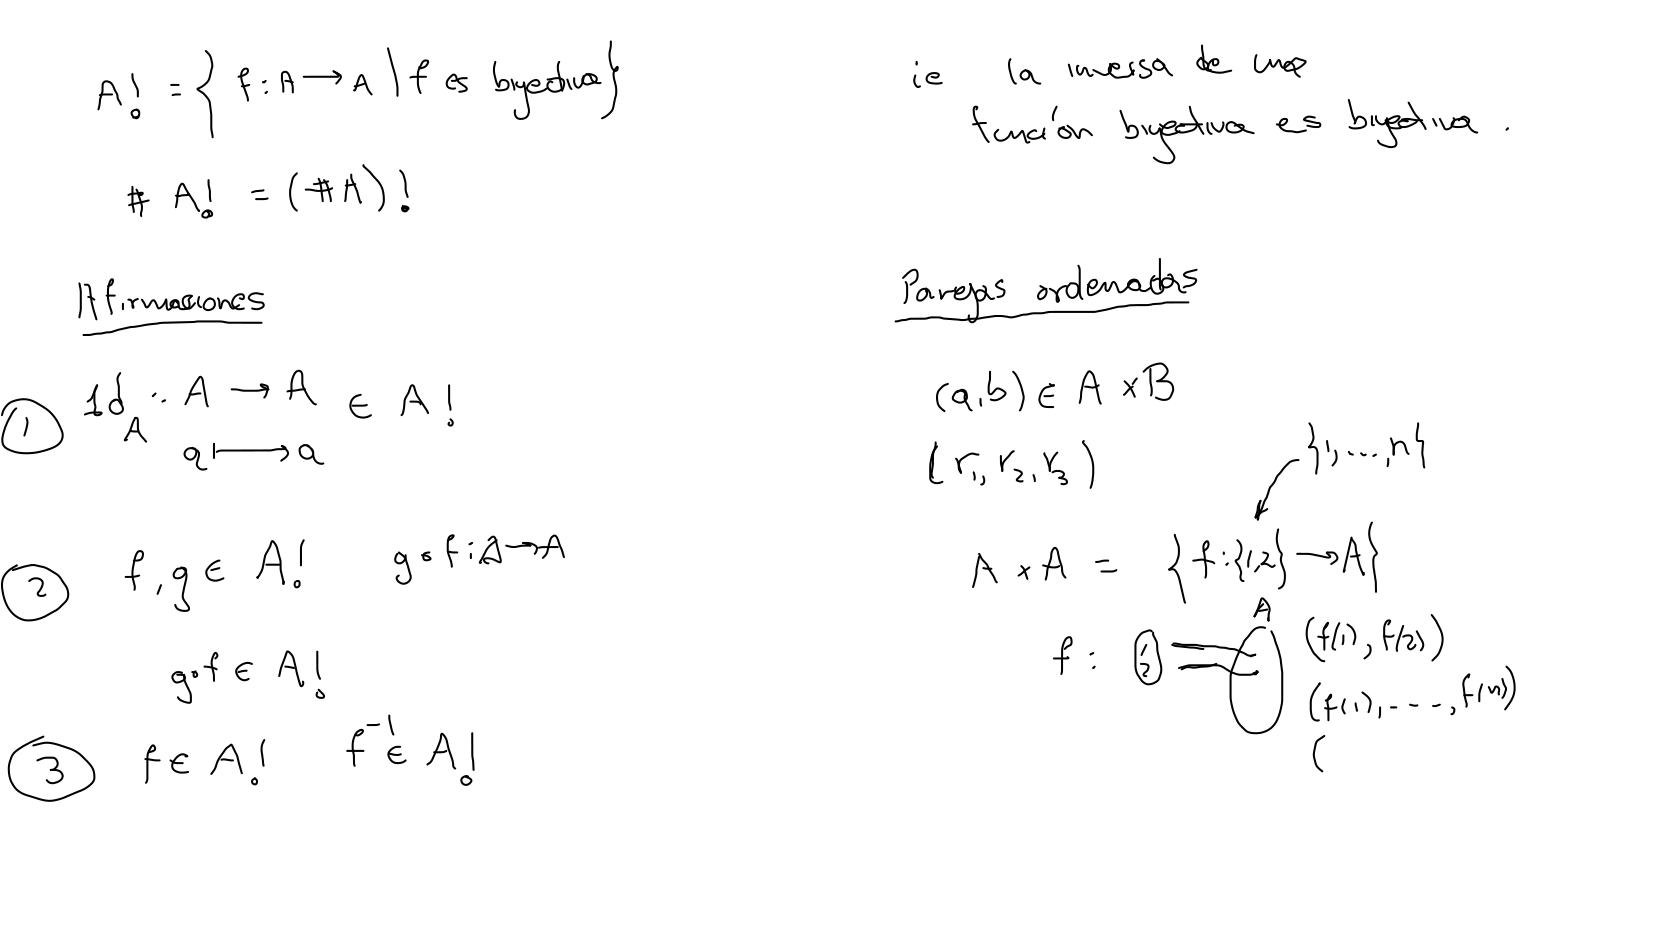 A! = { f : A → A | f es biyectiva}
# A! = (#A)!
Afirmaciones
① Id_A : A → A ∈ A!
a ↦ a
② f, g ∈ A!   g∘f : A → A
g∘f ∈ A!
③ f ∈ A!   f⁻¹ ∈ A!
ie la inversa de una
función biyectiva es biyectiva.
Parejas ordenadas
(a,b) ∈ A × B
(r₁, r₂, r₃)
{1,...,n}
A × A = { f : {1,2} → A}
A
f : 1 2
(f(1), f(2))
(f(1), ----, f(n))
(